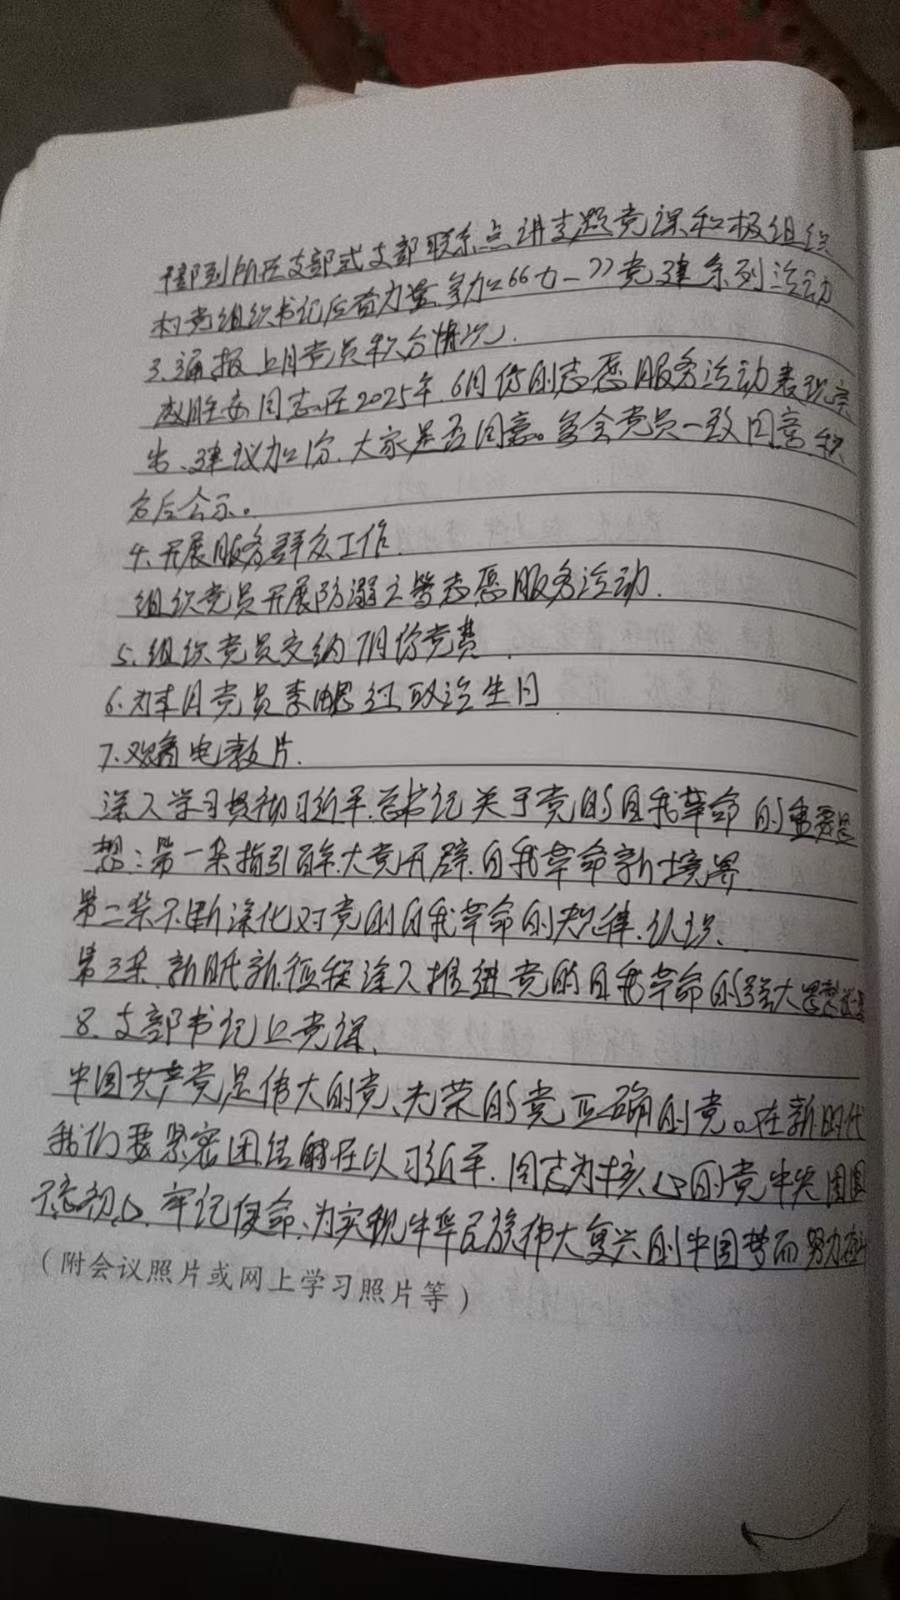 干部到所在支部或支部联系点讲主题党课积极组织
村党组织书记后备力量参加“6个一”党建系列活动
3.通报上月党员积分情况.
同志在2025年6月份的志愿服务活动表现突
出、建议加2分,大家是否同意。参会党员一致同意,积
分后公示。
4.开展服务群众工作.
组织党员开展防溺水警志愿服务活动.
5.组织党员交纳7月份党费.
6.为本月党员李红政治生日
7.观看电教片.
深入学习贯彻习近平总书记关于党的自我革命的重要思
想:第一集指引百年大党开辟自我革命新境界
第二集不断深化对党的自我革命的规律认识、
第3集新时代新征程深入推进党的自我革命的强大思想
8.支部书记上党课、
中国共产党是伟大的党、光荣的党正确的党。在新时代
我们要紧密团结在以习近平同志为核心的党中央周围
不忘初心、牢记使命、为实现中华民族伟大复兴的中国梦而努力奋斗
(附会议照片或网上学习照片等)